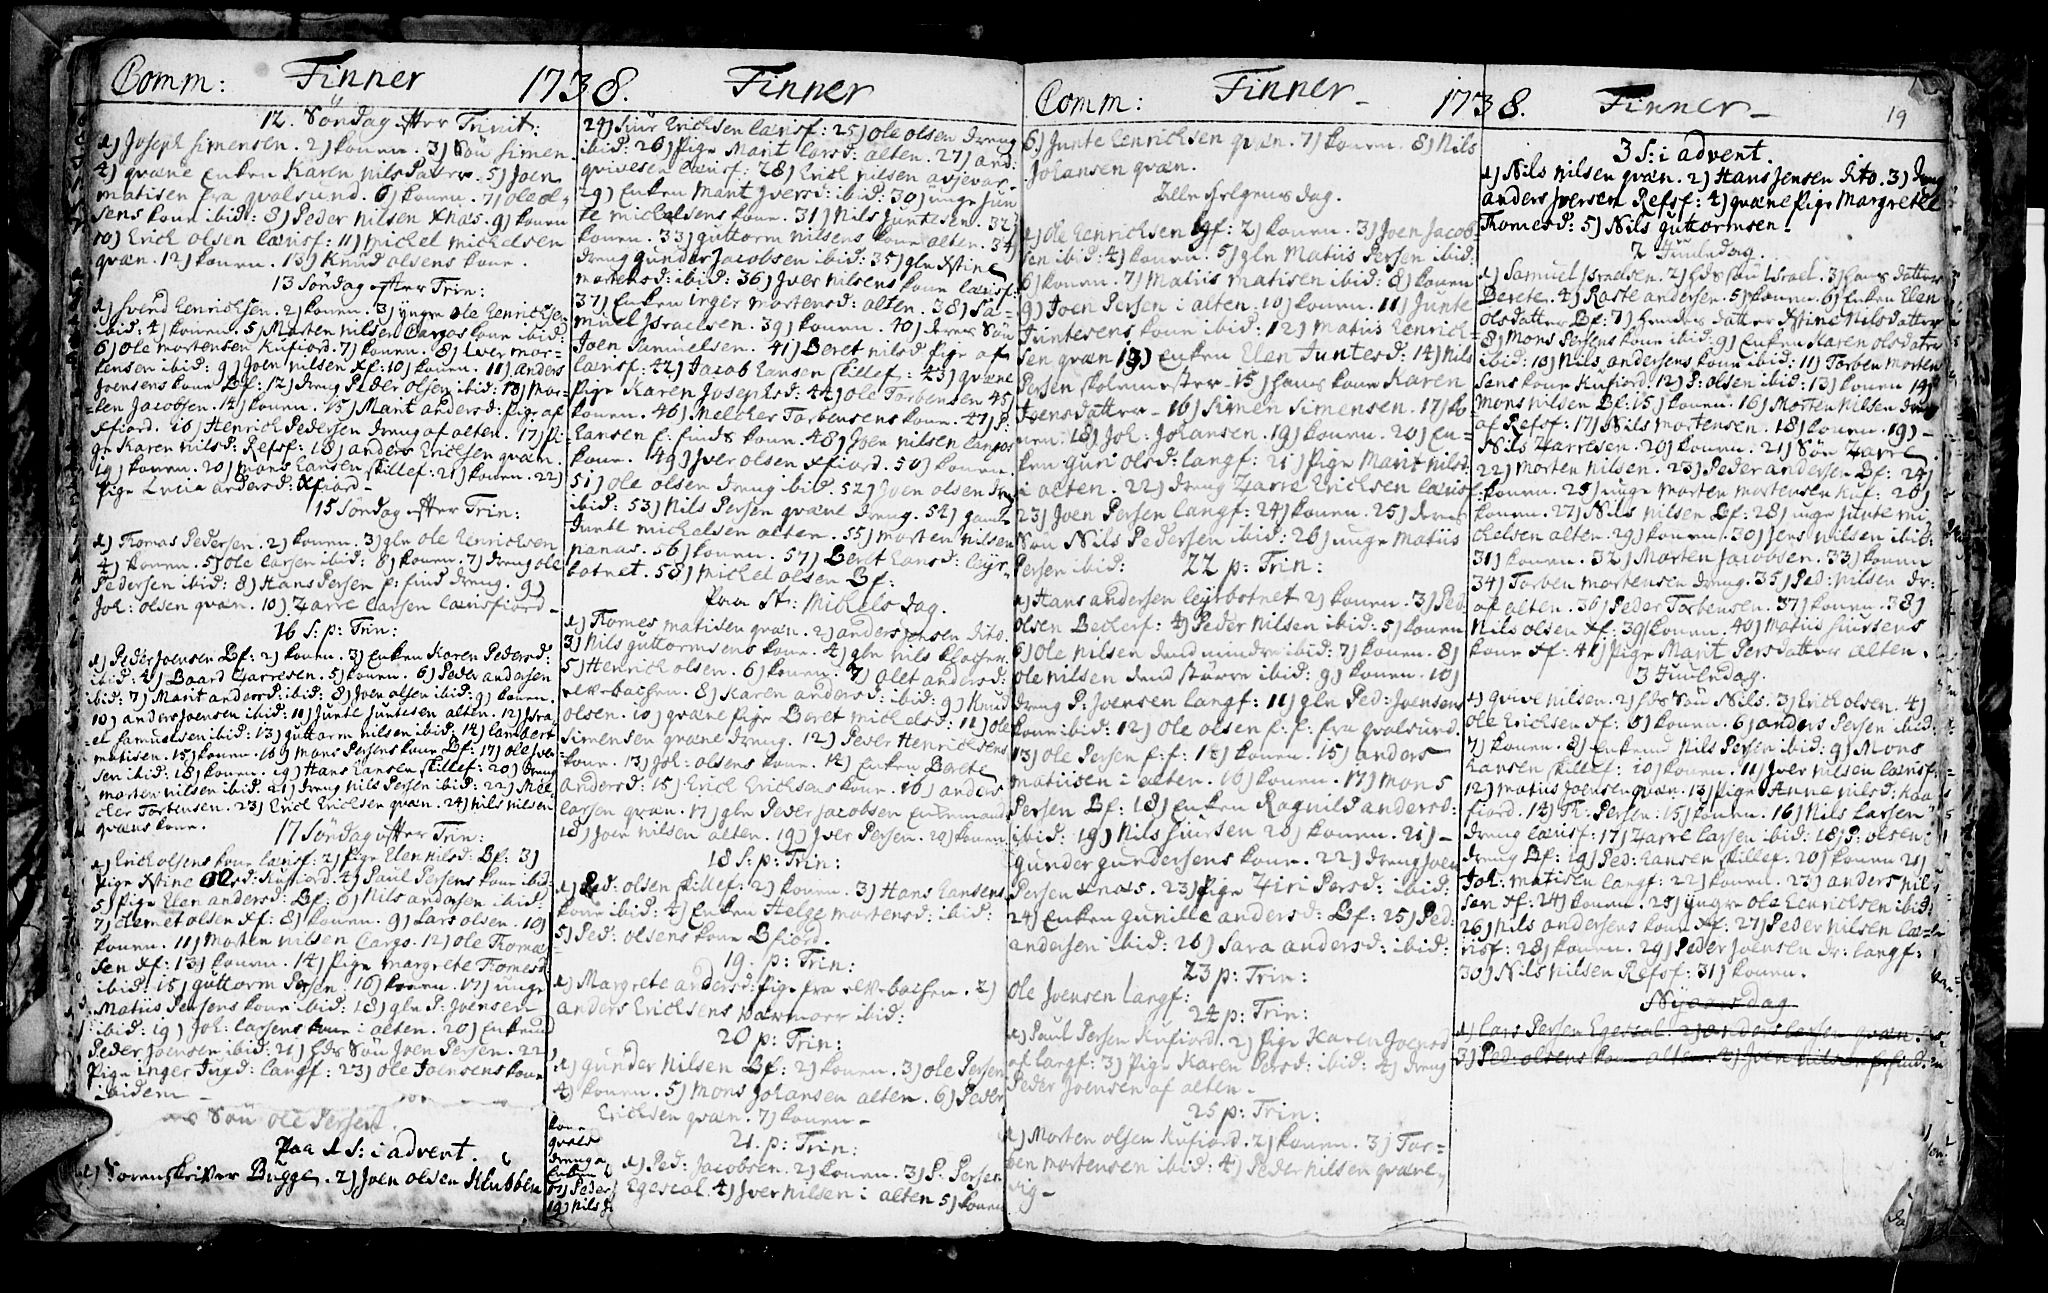 Comm: Finner 1738. Finner
12. Söndag efter Trinit:
1) Joseph Simensen. 2) konen. 3) Sön Simen.
4) qvæne Enken Karen Nils 5) Joen
matisen fra qvalsund. 6) konen. 7) ole ol-
sens kone ibid: 8) Peder Nilsen 9) konen
10) Erich olsen lærisf: 11) michel michelsen
qvæn. 12) konen. 13) Knud olsens kone.
13 Söndag efter Trin:
1) Svend Henrichsen. 2) konen. 3) yngre ole Henrichsen
ibid: 4) konen. 5) Morten Nilsen Cargos kone ibid:
6) ole mortensen Kufiord. 7) konen. 8) Iver mor-
tensen ibid: 9) Joen Nilsen Xf: 10) konen. 11) anders
Joensens kone Bf: 12) dreng Peder olsen ibid: 13) Mor-
ten Jacobsen. 14) konen. 15) Marit andersd: pige af
Xfiord. 16) Henrich Pedersen dreng af alten. 17) Pi-
ge Karen Nilsd: Refsf: 18) anders Erichsen qvæn.
19) konen. 20) mons Hansen skillef: 21) konen. 22)
Pige Lucia andersd: Xfiord-
15 Söndag efter Trin:
1) Thomas Pedersen. 2) konen. 3) gln ole Henrichsen
4) konen. 5) ole larsen ibid: 6) konen. 7) dreng ole
Pedersen ibid: 8) Hans Persen f: find dreng. 9)
Joh: olsen qvæn. 10) Zarre larsen lærisfiord-
16 S: p: Trin:
1) Peder Joensen Bf: 2) konen. 3) Enken Karen Pedersd:
ibid: 4) Baard Zarresen. 5) konen. 6) Peder andersen
ibid: 7) Marit andersd: ibid: 8) Joen olsen ibid: 9) konen.
10) anders Joensen ibid: 11) Junte Juntesen alten. 12) Isra-
el Samuelsen ibid: 13) guttorm nilsen ibid: 14) lambert
matisen. 15) konen. 16) Mons Persens kone Bf: 17) ole Iver-
sen ibid: 18) konen. 19) Hans Hansen skillef: 20) dreng
morten Nilsen ibid: 21) dreng Nils Persen ibid: 22) Mel-
cher Torbensen. 23) Erich Erichsen qvæn. 24) Nils Nilsen
qvæns kone.
17 Söndag efter Trin:
1) Erich olsens kone lærisf: 2) Pige Elen Nilsd: Bf: 3)
Pige Xstine olsd: Kufiord. 4) Paul Persens kone ibid:
5) Pige Elen andersd: Bf: 6) Nils andersen ibid:
7) Clemet olsen Xf: 8) konen. 9) Lars olsen. 10)
konen. 11) Morten Nilsen Cargo. 12) ole Thomæ-
sen Xf: 13) konen. 14) Pige margrete Thomesd:
ibid: 15) guttorm Persen. 16) konen. 17) unge
Matiis Persens kone ibid: 18) gln P: Joensen
ibid: 19) Joh: larsens kone i alten. 20) Enkemd
Peder Joensen ibid: 21) hds Sön Joen Persen. 22)
Pige Inger Jugd: langf: 23) ole Joensens kone
ibidem-
Sön ole Persen.
Paa 1 S: i advent.
1) Sorenskriver Bugge. 2) Joen olsen Klubben
24) Siur Erichsen lærisf: 25) ole olsen dreng
ibid: 26) Pige Marit larsd: alten. 27) and:
qvivesen lærisf: 28) Erich Nilsen
29) Enken Marit Iversd: ibid: 30) unge Jun-
te michelsens kone. 31) Nils Juntesen. 32)
konen. 33) guttorm Nilsens kone alten. 34)
dreng gunder Jacobsen ibid: 35) gln Xstine
mortensd: ibid: 36) Iver Nilsens kone lærisf:
37) Enken Inger mortensd: alten. 38) Sa-
muel Israelsen. 39) konen. 40) deres Sön
Joen Samuelsen. 41) Beret Nilsd pige af
lærisf: 42) Jacob Hansen skillef: 43) qvæne
Pige Karen Josephsd: 44) ole Torbensen 45)
konen. 46) Melcher Torbensens kone. 47) P:
Hansen f: finds kone. 48) Joen Nilsen Cargos
kone. 49) Iver olsen Xfiord. 50) konen.
51) ole olsen dreng ibid. 52) Joen olsen dreng
ibid: 53) Nils Persen qvæne dreng. 54) gamle
Junte michelsen alten. 55) morten Nilsen
nanas. 56) konen. 57) Beret Hansd: leyr-
botnet. 58) michel olsen Bf:
Paa St: Mikels dag.
1) Thomes matisen qvæn. 2) anders Jensen dito.
3) Nils guttormsens kone. 4) gln nils
5) Henrich olsen. 6) konen. 7) olet andersd:
elvebachen. 8) Karen andersd: ibid: 9) Knud
olsen. 10) qvæne pige Beret michelsd: 11) ole
Simensen qvæne dreng. 12) Peder Henrichsens
kone. 13) Joh: olsens kone. 14) Enken Berete
andersd: 15) Erich Erichsens kone. 16) anders
larsen qvæn. 17) gln Peder Jacobsen Enkemand
18) Joen Nilsen alten. 19) Iver Persen. 20) konen
18 S: p: Trin:
1) Ped: olsen skillef: 2) konen. 3) Hans Hansens
kone ibid: 4) Enken Helge mortensd: ibid:
5) Ped: olsens kone Bfiord.
19. p: Trin:
1) Margrete andersd: pige fra elvebachen. 2)
anders Erichsens ibid:
20 p: Trin:
1) gunder Nilsen Bf: 2) konen. 3) ole Persen
4) konen. 5) Mons Johansen alten. 6) Peder
Erichsen qvæn. 7) konen-
21. p: Trin:
1) Ped: Jacobsen. 2) konen. 3) P: Persen
Egeseal. 4) Iver Nilsen i alten 5) konen
Comm: Finner- 1738. Finner-
19
6) Junte Henrichsen qvæn. 7) konen. 8) Nils
Johansen qvæn.
Alle helgens dag.
1) Ole Henrichsen lgf: 2) konen. 3) Joen Jacob-
sen ibid: 4) konen. 5) gln Matiis Persen ibid:
6) konen. 7) Matiis matisen ibid: 8) konen
9) Joen Persen i alten. 10) konen. 11) Junte
Juntesens kone ibid: 12) Matiis Henrich-
sen qvæn 13) Enken Elen Juntesd: 14) Nils
Persen skolemester- 15) hans kone Karen
Joensdatter- 16) Simen Simensen. 17) ko-
nen. 18) Joh: Johansen. 19) konen. 20) En-
ken guri olsd: langf: 21) Pige Marit Nilsd:
i alten. 22) dreng Zarre Erichsen lærisf:
23) Joen Persen langf: 24) konen. 25) deres
Sön Nils Pedersen ibid: 26) unge Matiis
Persen ibid: 22 p: Trin:
1) Hans andersen leyrbotnet 2) konen. 3) Ped:
olsen 4) Peder Nilsen ibid: 5) konen
6) ole Nilsen dend mindre ibid: 7) konen. 8)
ole Nilsen dend större ibid: 9) konen. 10)
dreng P: Joensen langf: 11) gln Ped: Joensens
kone ibid: 12) ole olsen f: f: fra qvalsund.
13) ole Persen f: f: 14) konen. 15) anders
matiisen i alten. 16) konen. 17) Mons
Persen Bf: 18) Enken Ragnild andersd:
ibid: 19) Nils Siursen 20) konen. 21)-
gunder gundersens kone. 22) dreng Joen
Persen 23) Pige Ziri Persd: ibid:
24) Enken gunille andersd: Bf: 25) Ped:
andersen ibid: 26) Sara andersd: ibid:
23 p: Trin:
Ole Joensen Langf:
24 p: Trin:
1) Paul Persen Kufiord. 2) Pige Karen Joensd
af langf: 3) Pige Karen Persd: ibid: 4) dreng
Peder Joensen af alten-
25 p: Trin:
1) Morten olsen Kufiord. 2) konen. 3) Tor-
ben mortensen ibid: 4) Peder Nilsen qvæne-
vig-
3 S: i advent.
1) Nils Nilsen qvæn. 2) Hans Jensen dito. 3) dreng
anders Iversen Refsf: 4) qvæne pige Margrete
Thomesd: 5) Nils guttormsen-
2 Juuledag.
1) Samuel Israelsen. 2) hds sön Israel. 3) hans datter
Berete. 4) Raste andersen. 5) konen. 6) Enken Elen
olsdatter Bf: 7) hendes datter Xstine Nilsdatter
8) Mons Persens kone ibid: 9) Enken Karen olsdater
ibid: 10) Nils andersens kone ibid: 11) Torben morten-
sens kone Kufiord. 12) P: olsen ibid: 13) konen 14)
mons Nilsen Bf: 15) konen. 16) Morten Nilsen dreng
af Refsf: 17) Nils mortensen. 18) konen. 19)-
Nils Zarresen. 20) konen. 21) Sön Zarre.
22) morten Nilsen. 23) Peder andersen Bf: 24)
konen. 25) unge morten mortensen Kuf: 26)
konen. 27) Nils Nilsen Bf: 28) unge Junte mi-
chelsen alten. 29) konen. 30) Jens Nilsen ibid:
31) konen. 32) Morten Jacobsen. 33) konen
34) Torben mortensen dreng. 35) Ped: Nilsen dr:
af alten. 36) Peder Torbensen. 37) konen. 38)
Nils olsen Xf: 39) konen. 40) Matiis Siursens
kone Xf: 41) Pige Marit Persdatter alten.
3 Juuledag.
1) qvive Nilsen. 2) hds Sön Nils. 3) Erich olsen. 4)
Ole Erichsen Xf: 5) konen. 6) anders Persen ibid:
7) konen. 8) Enkemd Nils Persen ibid: 9) Mons
Hansen skillef: 10) konen. 11) Iver Nilsen lærisf:
12) matiis Joensen qvæn. 13) Pige Anne Nilsd: Kaa-
fiord. 14) Th: Persen. 15) konen. 16) Nils larsen
dreng lærisf: 17) Zarre larsen ibid: 18) P: olsen
dreng Bf: 19) Ped: Hansen skillef: 20) konen 21)
Joh: matisen langf: 22) konen. 23) anders Nil-
sen Xf: 24) konen. 25) yngre ole Henrichsen ibid:
26) Nils andersens kone Xf: 27) Peder Nilsen læ-
risf: 28) konen. 29) Peder Joensen dr: langf:
30) Nils Nilsen Refsf: 31) konen.
Nyaarsdag
1) Lars Persen Egeseal 2) anders larsen qvæn.
3) Ped: olsens kone alten. 4) Joen nilsen f: find.